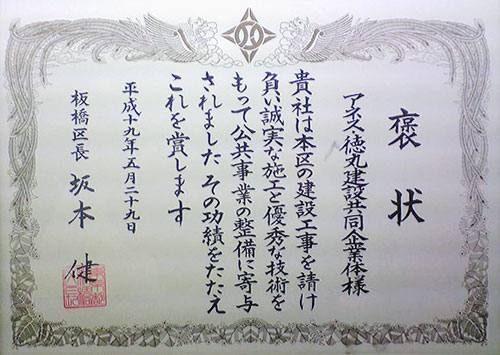 褒状
アネス・徳丸建設共同企業体様
貴社は本区の建設工事を請け
負い誠実な施工と優秀な技術を
もって公共事業の整備に寄与
されました その功績をたたえ
これを賞します
平成十九年五月二十九日
板橋区長 坂本 健